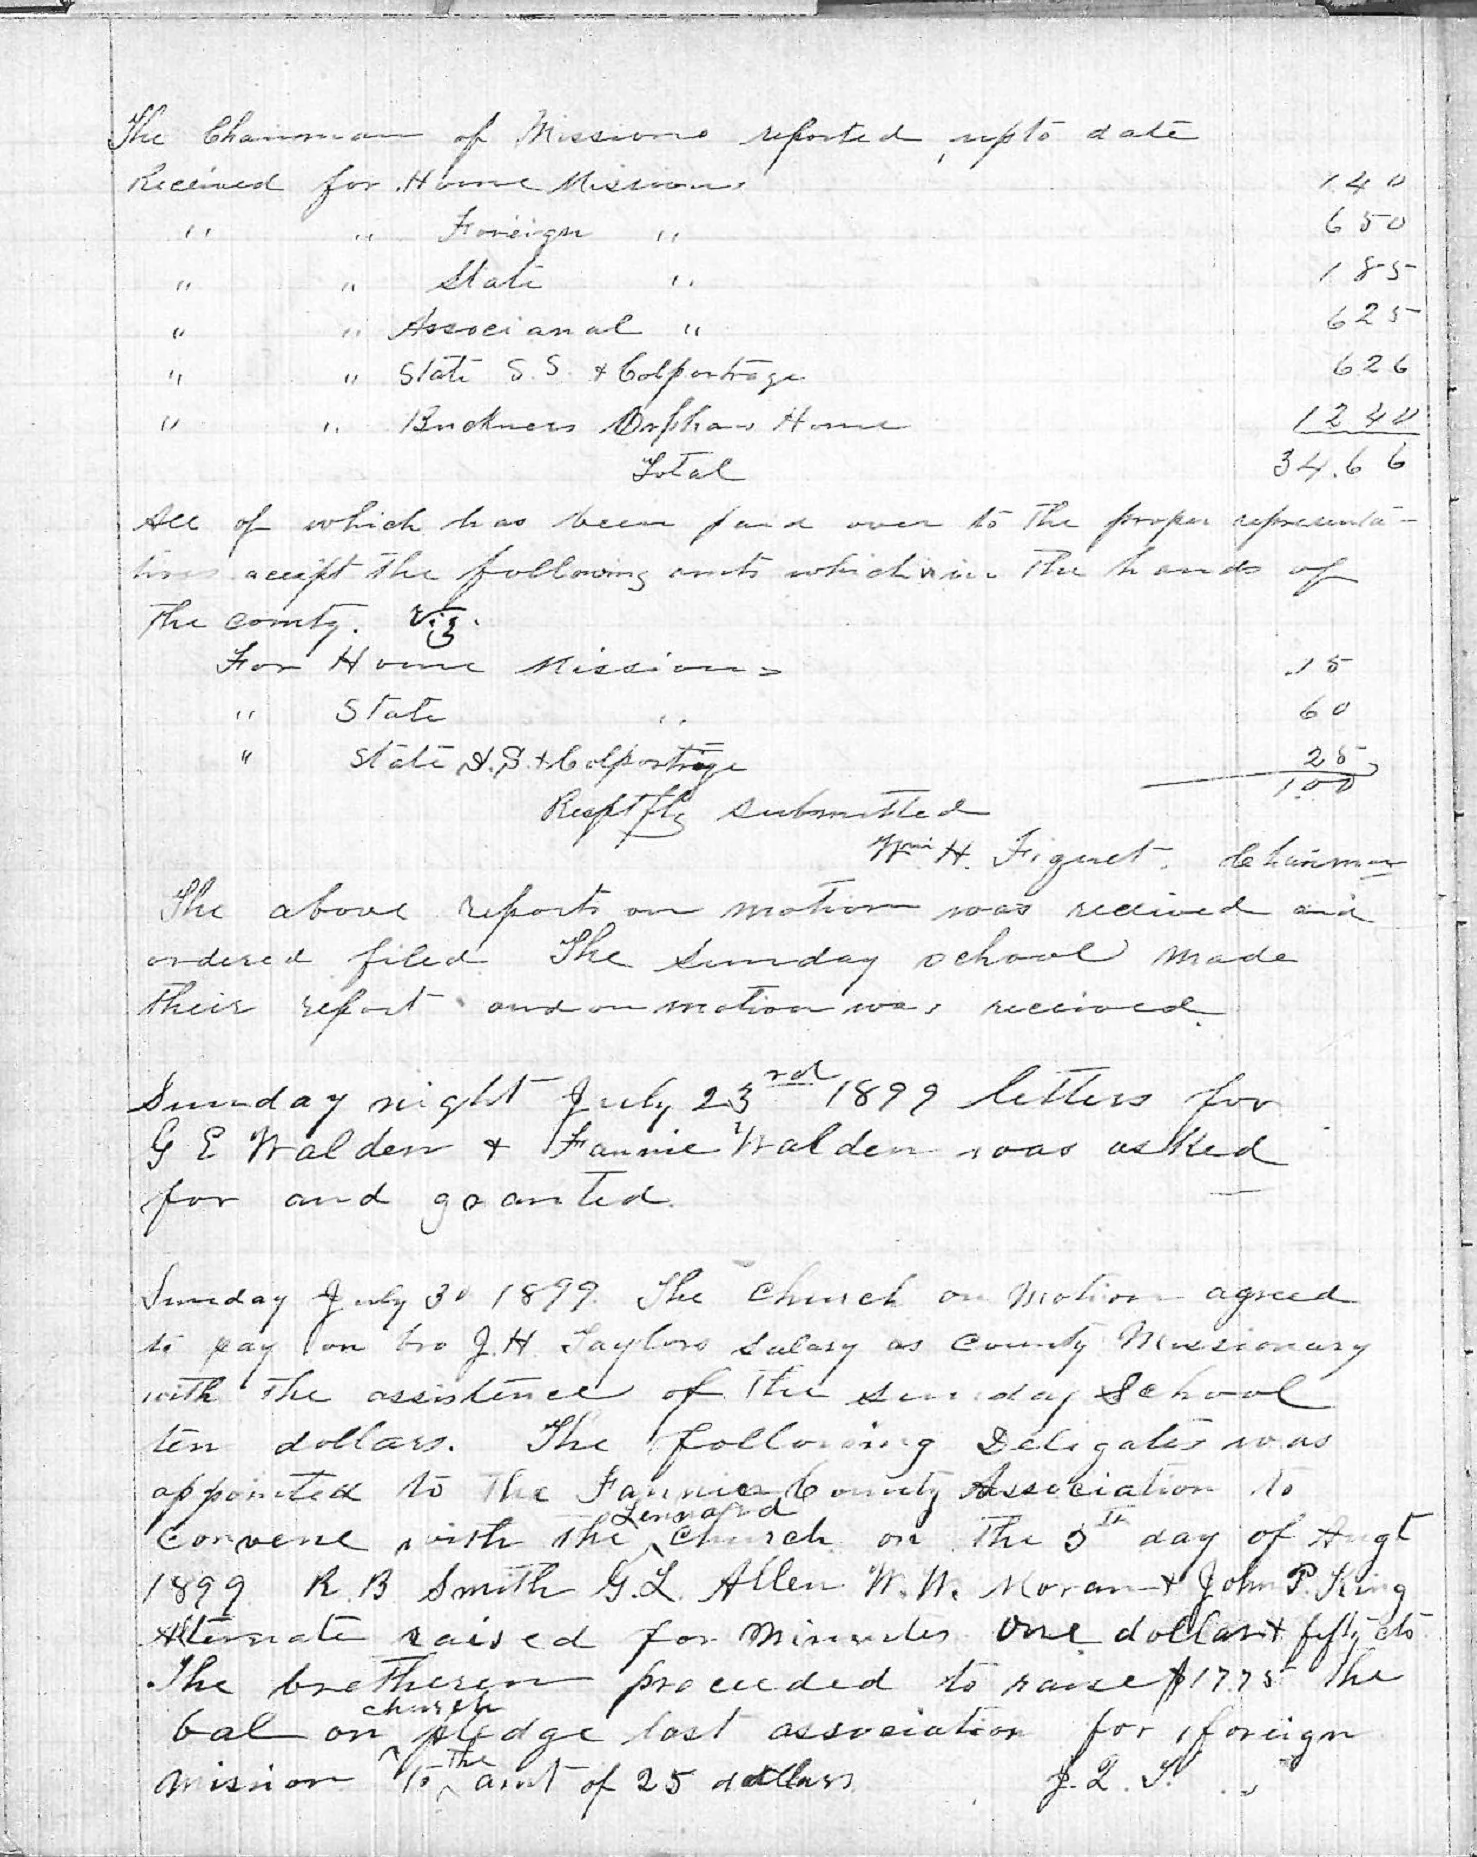 The Chairman of Missions reported upto date
Received for Home Missions 140
" " Foreign " 650
" " State " 185
" " Associanal " 625
" " State S.S. & Colportage 626
" " Buckners Orphans Home 1240
Total 34.66
All of which has been paid over to the proper representa-
tives accept the following amts which is in the hands of
the comty. viz.
For Home Missions .15
" State " 60
" State S.S. & Colportage 25
100
Respt fly submitted
Wm H. Figuet. Chairman
The above reports on motion was received and
ordered filed The Sunday school made
their report and on motion was received.
Sunday night July 23rd 1899 letters for
G E Walden & Fannie Walden was asked
for and granted.
Sunday July 30 1899. The Church on Motion agreed
to pay on bro J.H. Taylors Salary as County Missionary
with the assistence of the Sunday School
ten dollars. The following Deligates was
appointed to the Fannin County Association to
convene with the Lennard church on the 5th day of Augt
1899 R.B Smith G.L. Allen W.W. Moran & John P. King
Alternate raised for Minutes One dollar & fifty cts
The bretheren proceeded to raise $17.75 the
bal on church pledge last association for foreign
mission to the amt of 25 dollars J. L. T.